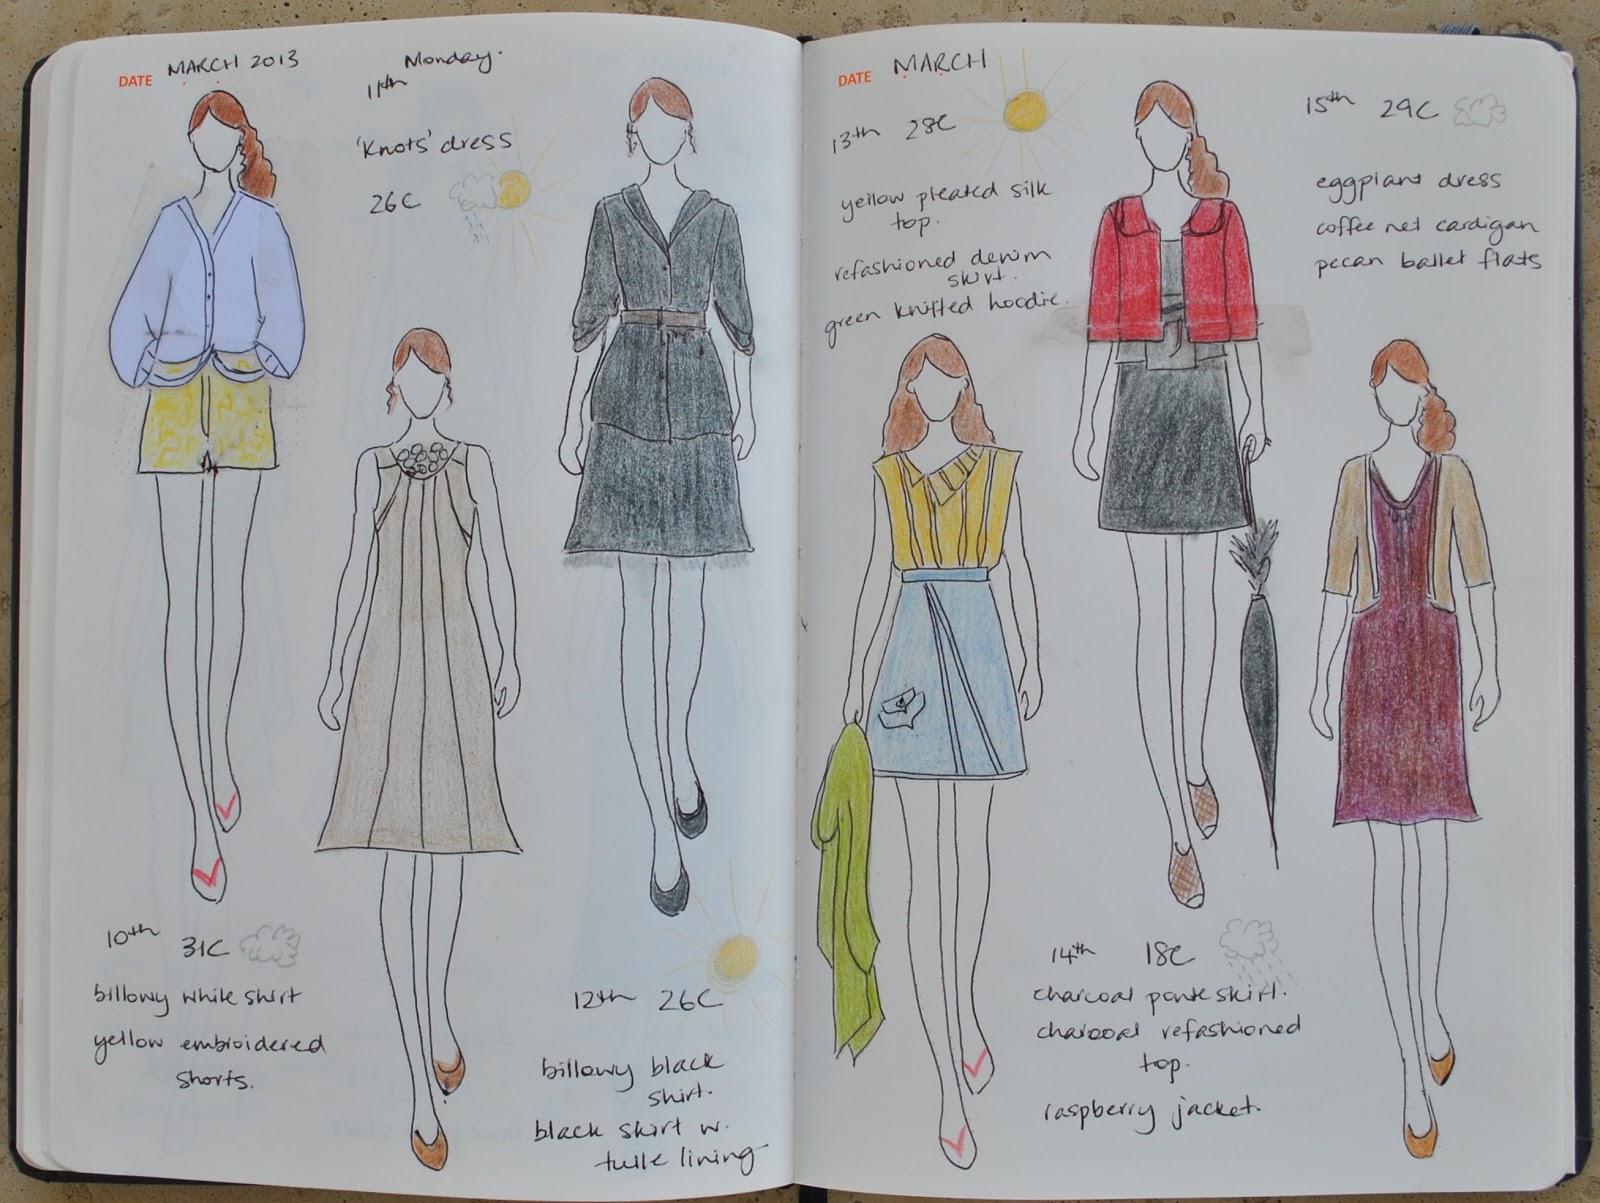 DATE MARCH 2013
Monday.
11th
'Knots' dress
26C
10th 31C
billowy white shirt
yellow embroidered
shorts.
12th 26C
billowy black
shirt.
black skirt w.
tulle lining
DATE MARCH
13th 28C
yellow pleated silk
top.
refashioned denim
skirt.
green knitted hoodie.
14th 18C
charcoal ponte skirt.
charcoal refashioned
top.
raspberry jacket.
15th 29C
eggplant dress
coffee net cardigan
pecan ballet flats